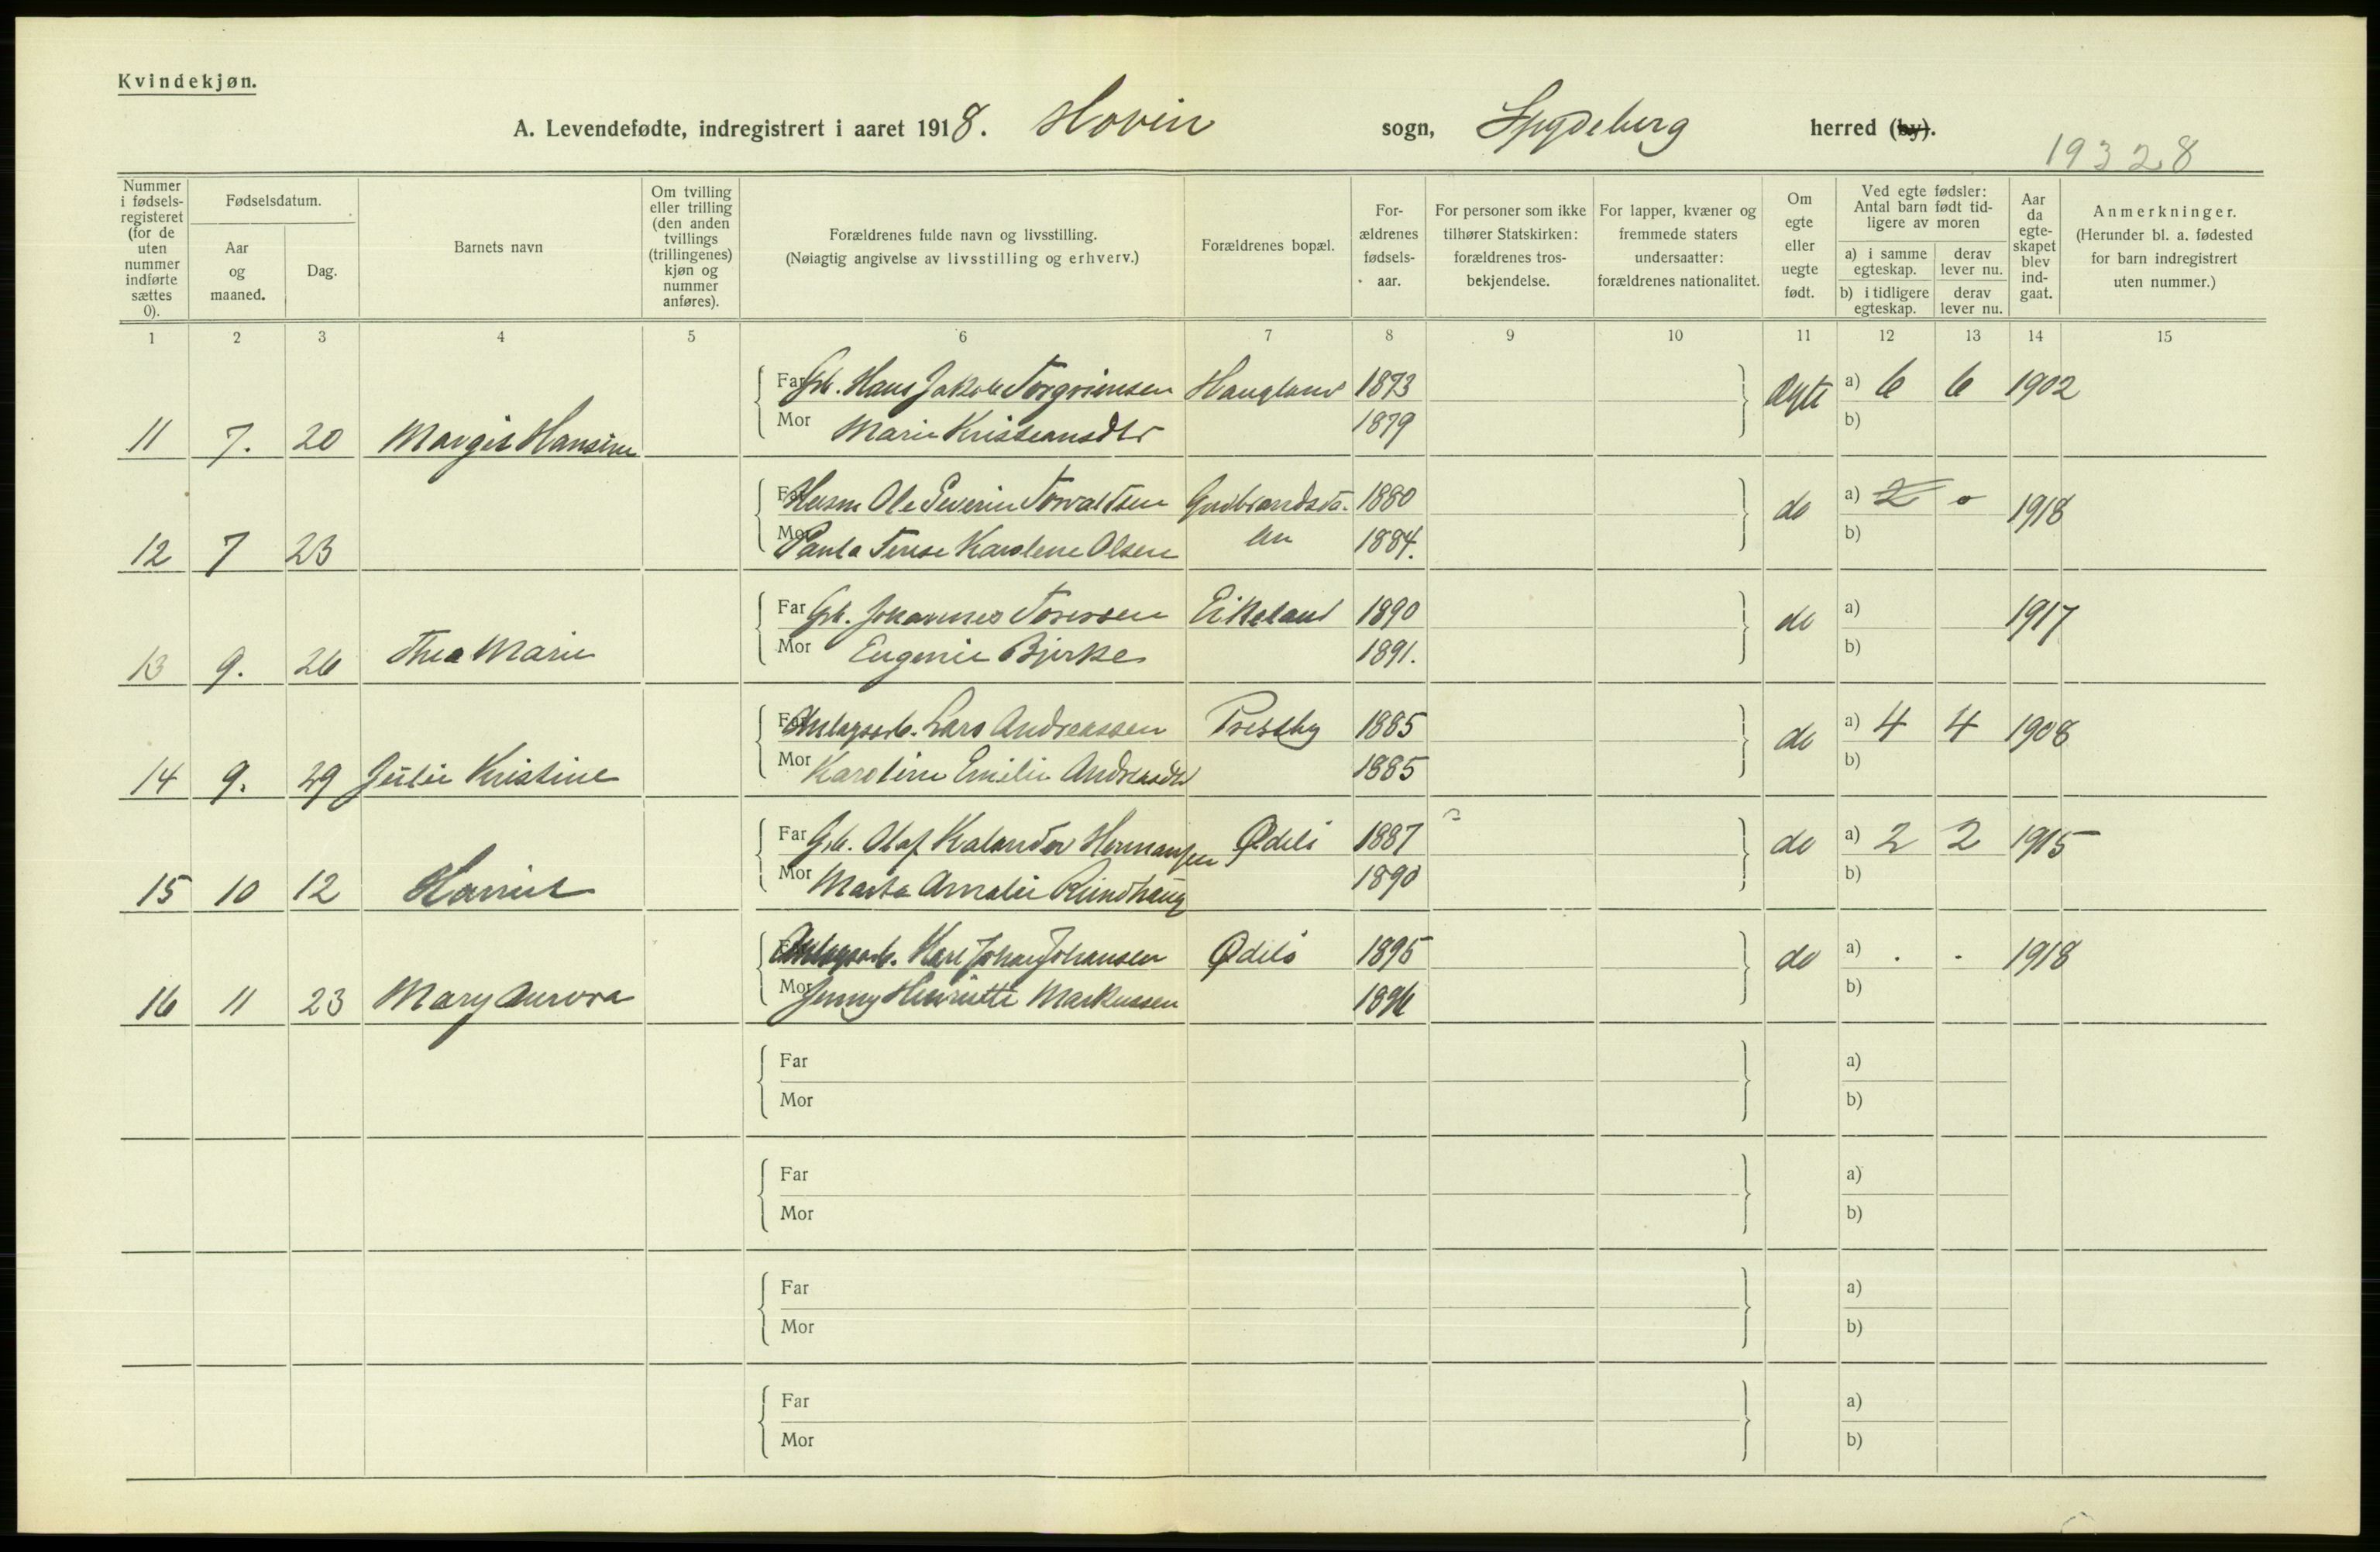 Kvindekjøn.
A. Levendefødte, indregistrert i aaret 1918. Hovin sogn, Spydeberg herred (by).
19328
Nummer i fødsels-registeret (for de uten nummer indførte sættes 0).
Fødselsdatum.
Aar og maaned.
Dag.
Barnets navn
Om tvilling eller trilling (den anden tvillings (trillingenes) kjøn og nummer anføres).
Forældrenes fulde navn og livsstilling. (Nøiagtig angivelse av livsstilling og erhverv.)
Forældrenes bopæl.
For-ældrenes fødsels-aar.
For personer som ikke tilhører Statskirken: forældrenes tros-bekjendelse.
For lapper, kvæner og fremmede staters undersaatter: forældrenes nationalitet.
Om egte eller uegte født.
Ved egte fødsler: Antal barn født tid-ligere av moren
a) i samme egteskap.
derav lever nu.
b) i tidligere egteskap.
derav lever nu.
Aar da egte-skapet blev ind-gaat.
Anmerkninger. (Herunder bl. a. fødested for barn indregistrert uten nummer.)
1 2 3 4 5 6 7 8 9 10 11 12 13 14 15
Far Gb. Hans Jakob Torgrimsen Haugland 1873 Ægte a) 6 6 1902
11 7. 20 Margit Hansine Mor Marie Kristiansdtr 1879 b)
Far Husm Ole Severin Torvaldsen Gudbrandsda- 1880 do a) 2 0 1918
12 7 23 Mor Paula Terese Karolene Olsen len 1884. b)
Far Gb. Johannes Toresen Eikeland 1890 do a) 1917
13 9. 26 Thea Marie Mor Eugenie Bjerke 1891. b)
Far Anlegsarb. Lars Andreassen Prestby 1885 do a) 4 4 1908
14 9. 29 Julie Kristine Mor Karoline Emilie Andreasdtr 1885 b)
Far Gb. Olaf Kalander Hermansen Ødeli 1887 do a) 2 2 1915
15 10 12 Harriet Mor Marta Amalie Rundhaug 1890 b)
Far Anlegsarb. Karl Johan Johansen Ødeli 1895 do a) . . 1918
16 11 23 Mary Aurora Mor Jenny Henriette Markussen 1896 b)
Far a)
Mor b)
Far a)
Mor b)
Far a)
Mor b)
Far a)
Mor b)